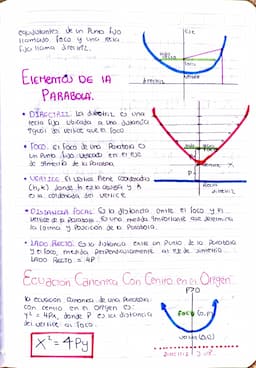 equidistantes de un Punto fijo
llamado foco y una recta
fija llama directriz.
Eje
Foco
directriz
vertice
ELEMENTOS DE LA
PARÁBOLA.
• DIRECTRIZ: La directriz es una
recta fija ubicada a una distancia
igual del vertice que el foco
• FOCO: El foco de una Parabola es
un Punto fijo ubicado en el eje
de simetria de la Parabola.
• VERTICE: El vertice tiene coordenada
(h,k) donde h es la abscisa y k
es la coordenada del vertice
Recta
directriz
• DISTANCIA FOCAL: Es la distancia entre el foco y el
vertice de la Parabola. Es una medida importante que determina
la forma y Posición de la Parabola.
• LADO RECTO: Es la distancia entre un Punto de la Parabola
y el foco, medida perpendicularmente al eje de simetria
LADO RECTO = 4P
ECUACIÓN CANONICA CON CENTRO EN EL ORIGEN.
P>0
la ecuación canonica de una Parabola
con centro en el origen es:
y² = 4Px, donde P es la distancia
del vertice al foco.
Foco (0,P)
Vertice (0,0)
X² = 4Py
Directriz